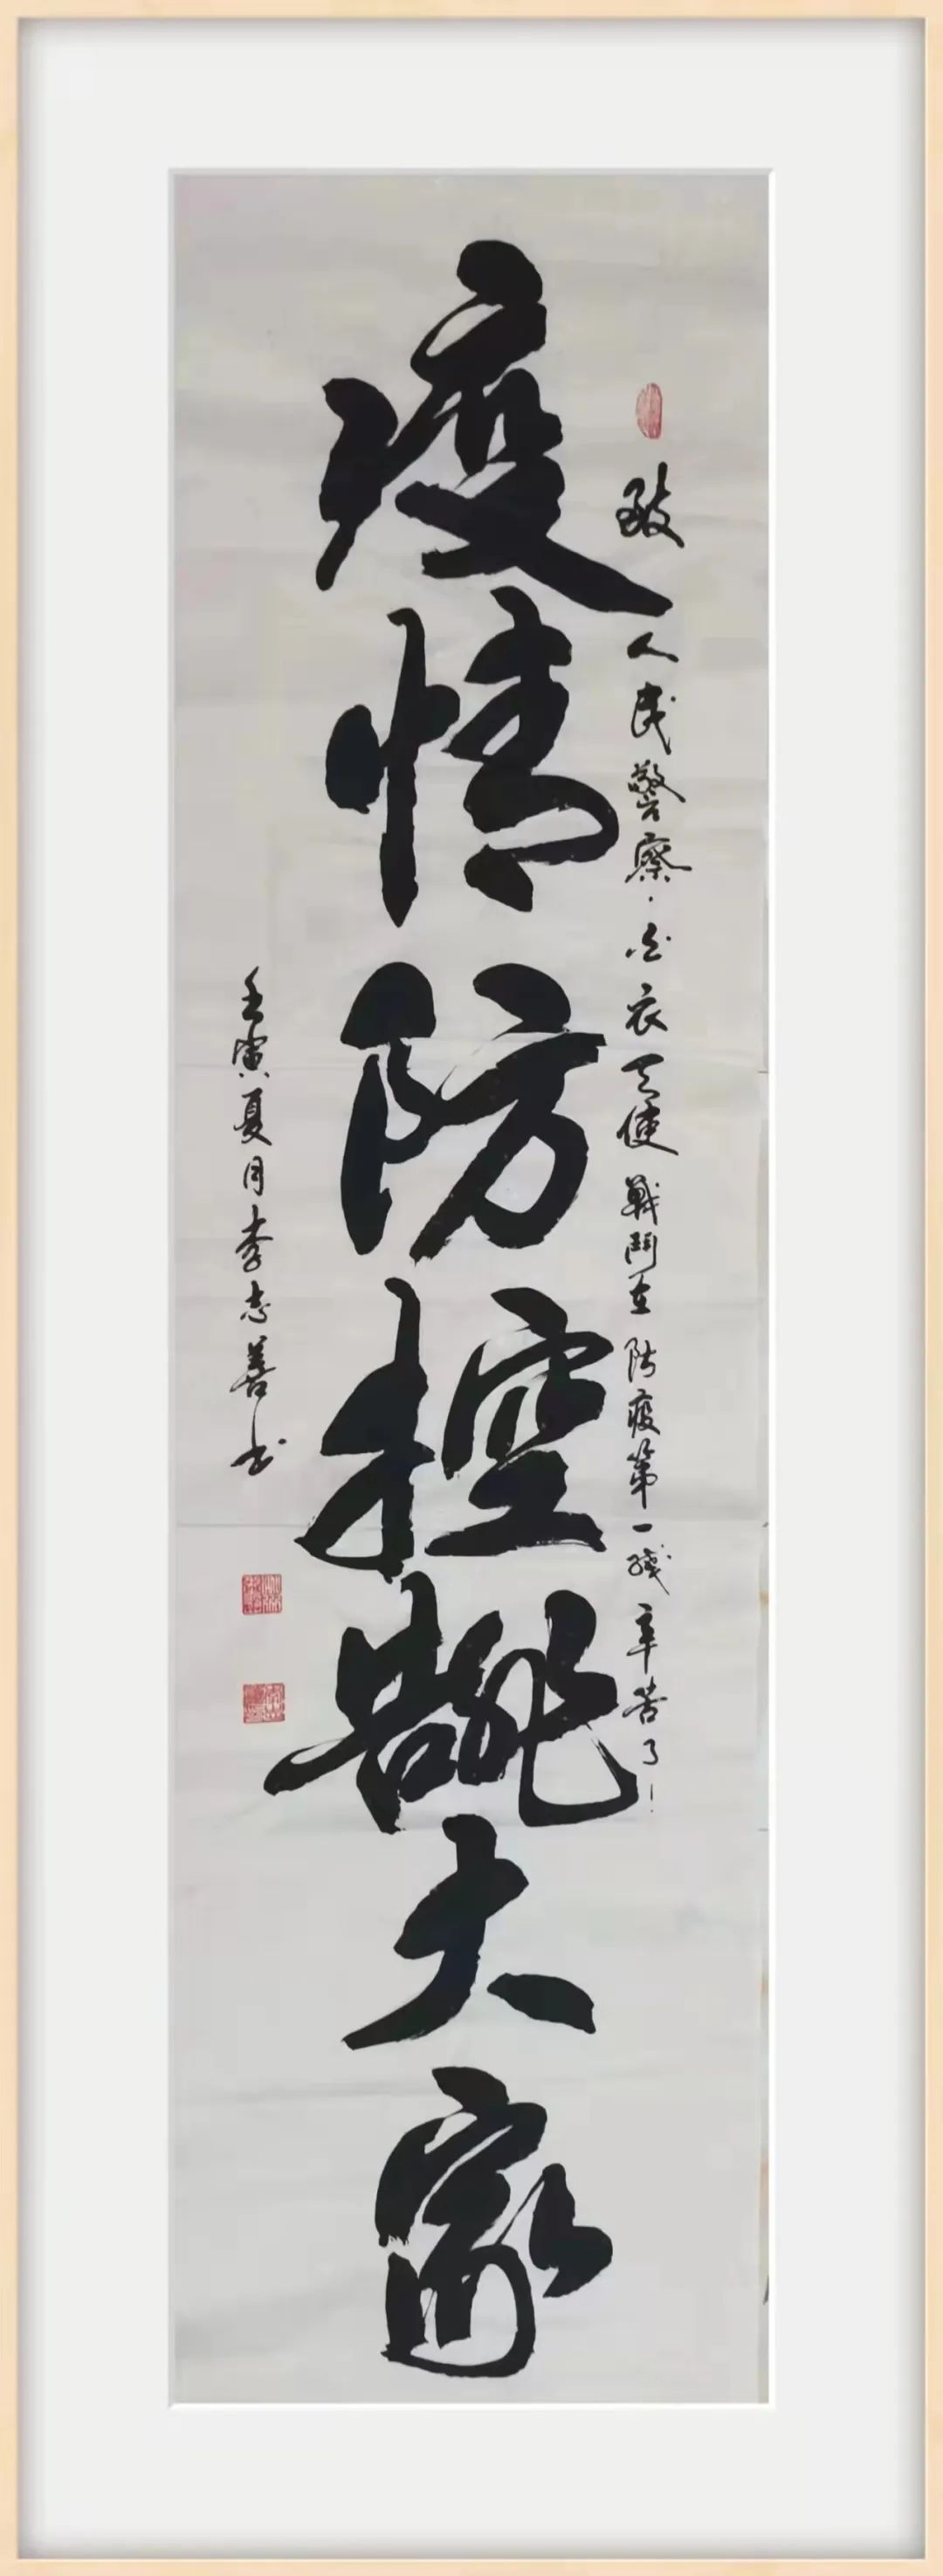 致人民警察·白衣天使戰鬥在防疫第一线辛苦了!
疫情防控靠大家
壬寅夏月李志善书